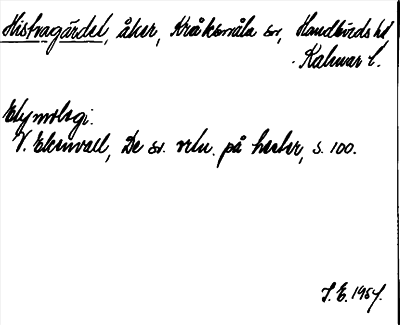 Histvagärdet, åker, Kråksmåla sn, Handbörds hd,
Kalmar l.
Etymologi.
V. Ekenvall, De sv. ortn. på hester, s. 100.
J. E. 1957.